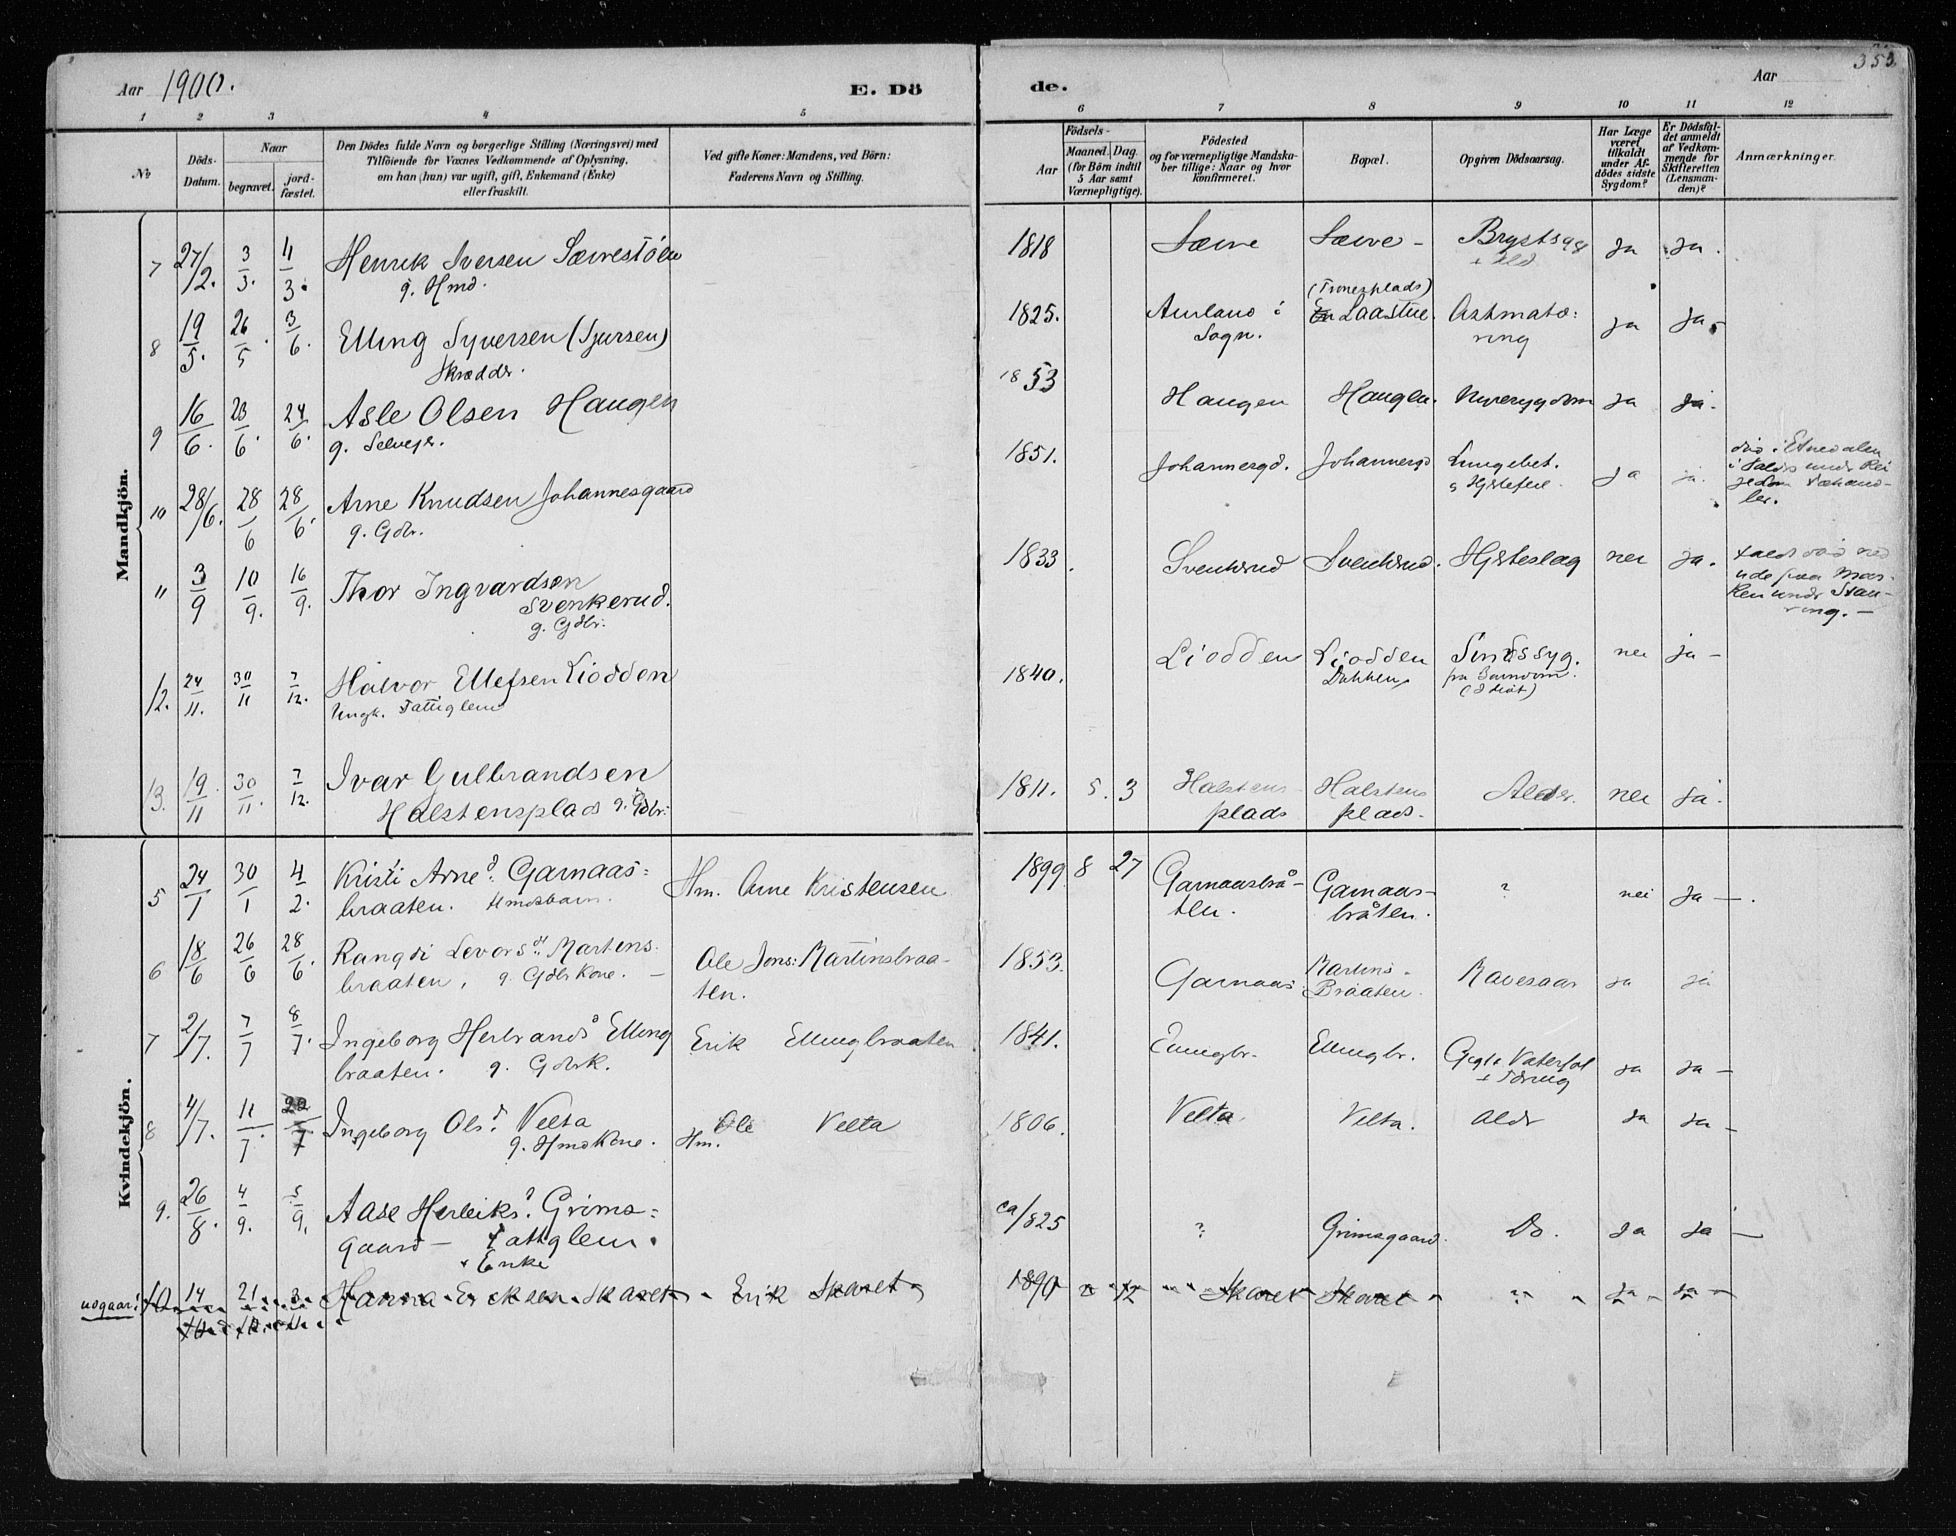 Aar 1900.
E. Dö
de.
Aar
353
1 2 3 4 5 6 7 8 9 10 11 12
No
Döds-
Datum.
Naar
begravet.
jord-
fæstet.
Den Dödes fulde Navn og borgerlige Stilling (Næringsvei) med
Tilföiende for Voxnes Vedkommende af Oplysning,
om han (hun) var ugift, gift, Enkemand (Enke)
eller fraskilt.
Ved gifte Koner: Mandens, ved Börn:
Faderens Navn og Stilling.
Födsels-
Aar
Maaned. Dag.
(for Börn indtil
5 Aar samt
Værnepligtige).
Födested
og for værnepligtige Mandska-
ber tillige: Naar og hvor
konfirmeret.
Bopæl.
Opgiven Dödsaarsag.
Har Læge
været
tilkaldt
under Af-
dödes sidste
Sygdom?
Er Dödsfal-
det anmeldt
af Vedkom-
mende for
Skifteretten
(Lensman-
den)?
Anmærkninger.
Mandkjön.
7 27/2. 3/3. 4/3. Henrik Iversen Sævrestölen 1818 Sævre Sævre - Brystsyg ja ja.
g. Hmd.
8 19/5. 26/5. 3/6. Elling Syversen (Sjursen) 1825. Aurland i (Finnesplads) Laastue. Astmatö: ja ja.
Skrædder. Sogn. ring
9 16/6. 23/6. 24/6. Asle Olsen Haugen 1853 Haugen Haugen. Nyresygdom ja ja.
g. Selvejer.
10 28/6. 28/6 28/6. Arne Knudsen Johannesgaard 1851. Johannesgd. Johannesgd Lungebet. ja ja. död i Etnedalen
g. Gdbr. Hjertefeil
11 3/9 10/9. 16/9. Thor Ingvardsen 1833. Svenkerud Svenkerud. Hjerteslag nei ja.
Svenkerud.
g. Gdbr.
12. 24/11. 30/11 7/12. Halvor Ellefsen Liodden 1840. Liodden Liodden Sindssyg. nei ja -
Ungk. Fattiglem Dokken fra Barndom.
(Idiot)
13. 19/11 30/11. 7/12. Ivar Gulbrandsen 1811. 5. 3 Halstens Halstens Alder. nei ja.
Halstensplads g. Gdbr. plads plads.
Kvindekjön.
5 24/1 30/1 4/2. Kristi Arned. Garnaas= Hm. Arne Kristensen 1899 8 27 Garnaasbrå- Garnaas- ? nei ja -.
braaten. Hmdsbarn. ten. bråten.
6 18/6 26/6 28/6. Rangdi Levorsd. Martens Ole Jons: Martinsbraa- 1853. Garnaas Martins- Mavesaar ja ja
braaten, g. Gdbrkone. - ten. Braaten.
7 2/7. 7/7 8/7. Ingeborg Herbrandsd Elling Erik Ellingbraaten 1841. Ellingbr. Ellingbr. ja ja -
braaten. g. Gdbrk.
8 4/7. 11/7. 22/7 Ingeborg Olsd. Velta Ole Velta 1806. Velta Velta. Aldr ja ja -
g. Hmdskone. Hm.
9. 26/8. 4/9. 5/9. Aase Herleiksd. Grims= ca 1825 ? Grimsgaard. Do. ja ja -
gaard - Fattiglem.
Enke
udgaar! 10 14/10 21/10 3/11 Hanna Eriksen Skaret Erik Skaret 1890 2 12 Skaret Skaret ? ja - ja -